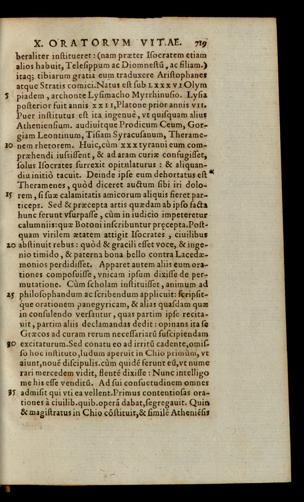 X. ORATORVM VITAE. 719
beraliter institueret: (nam præter Isocratem etiam
alios habuit, Telesippum ac Diomnestũ, ac filiam.)
itaq; tibiarum gratia eum traduxere Aristophanes
atque Stratis comici. Natus est sub LXXXVI Olym
5 piadem, archonte Lysimacho Myrrhinusio. Lysia
posterior fuit annis XXII, Platone prior annis VII.
Puer institutus est ita ingenuè, vt quisquam alius
Atheniensium. audiuitque Prodicum Ceum, Gor-
giam Leontinum, Tisiam Syracusanum, Therame-
10 nem rhetorem. Huic, cùm XXX tyranni eum com-
præhendi iussissent, & ad aram curiæ confugisset,
solus Isocrates surrexit opitulaturus: & aliquan-
diu initiò tacuit. Deinde ipse eum dehortatus est
Theramenes, quòd diceret auctum sibi iri dolo-
15 rem, si suæ calamitatis amicorum aliquis fieret par-
ticeps. Sed & præcepta artis quædam ab ipso facta
hunc ferunt vsurpasse, cùm in iudicio impeteretur
calumniis: quæ Botoni inscribuntur præcepta. Post-
quam virilem ætatem attigit Isocrates, ciuilibus
20 abstinuit rebus: quòd & gracili esset voce, & inge-
nio timido, & paterna bona bello contra Lacedæ-
monios perdidisset. Apparet autem aliis eum ora-
tiones composuisse, vnicam ipsum dixisse de per-
mutatione. Cùm scholam instituisset, animum ad
25 philosophandum ac scribendum applicuit: scripsit-
que orationem panegyricam, & alias quasdam quæ
in consulendo versantur, quas partim ipse recita-
uit, partim aliis declamandas dedit: opinans ita se
Græcos ad curam rerum necessariarũ suscipiendam
30 excitaturum. Sed conatu eo ad irritũ cadente, omis-
so hoc instituto, ludum aperuit in Chio primùm, vt
aiunt, noué discipulis. cùm quidẽ ferunt eũ, vt nume
rari mercedem vidit, flentẽ dixisse: Nunc intelligo
me his esse venditũ. Ad sui consuetudinem omnes
35 admisit qui vti ea vellent. Primus contentiosas ora-
tiones à ciuilib. quib. operã dabat, segregauit. Quin
& magistratus in Chio cõstituit, & similẽ Atheniẽsis